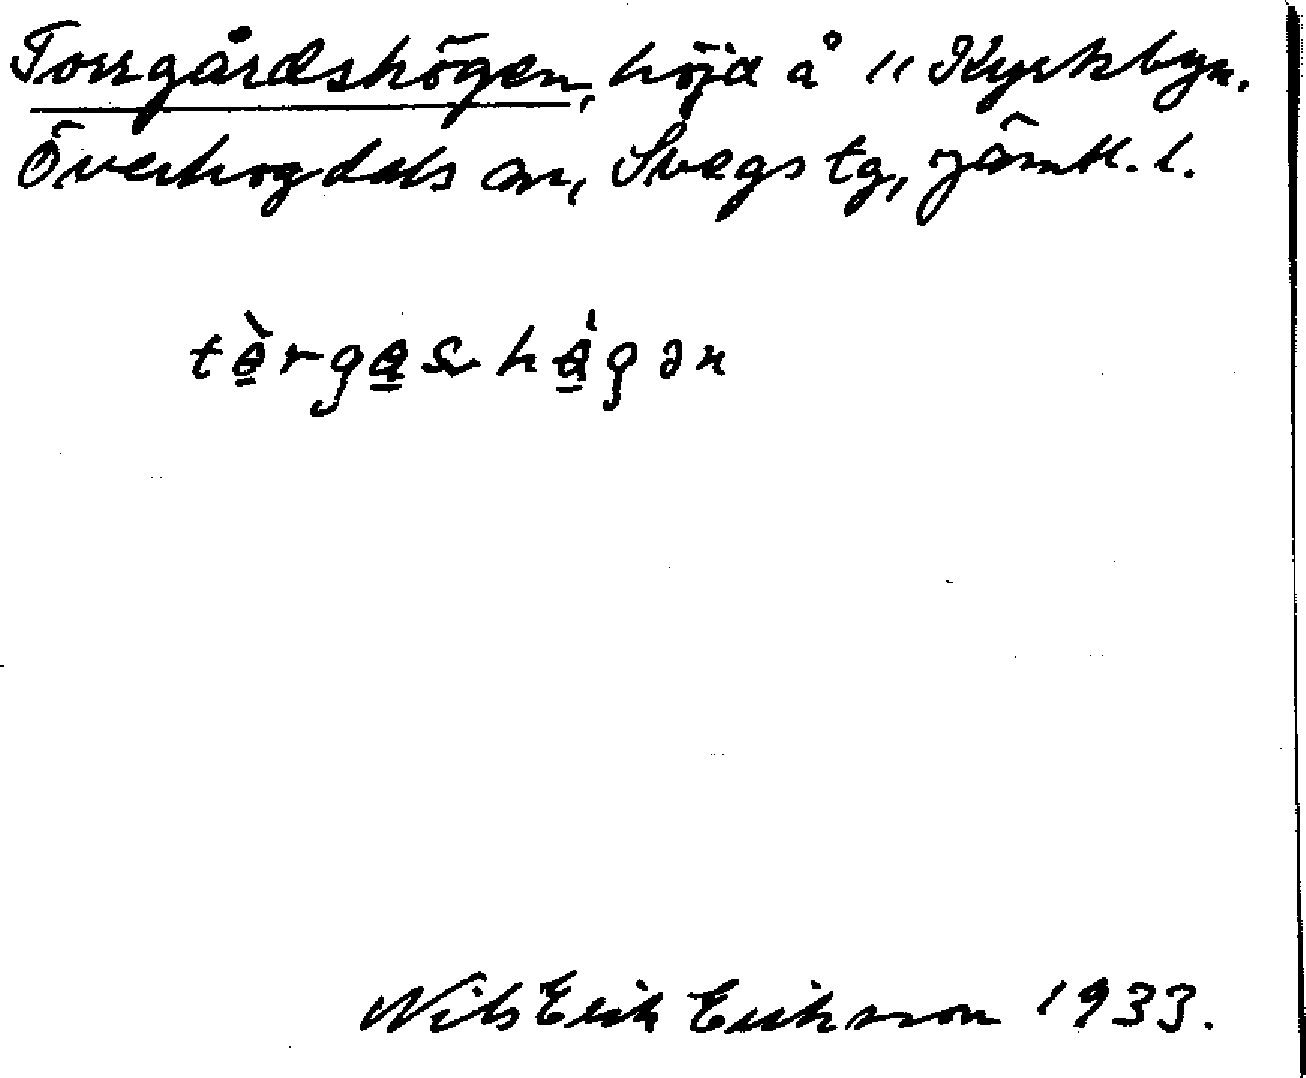 Torrgårdshögen, höjd å 11 Kyrkbyn.
Överhogdals sn, Svegs tg, Jämtl. l.
tə̀rgashǿgən
Nils Erik Eriksson 1933.